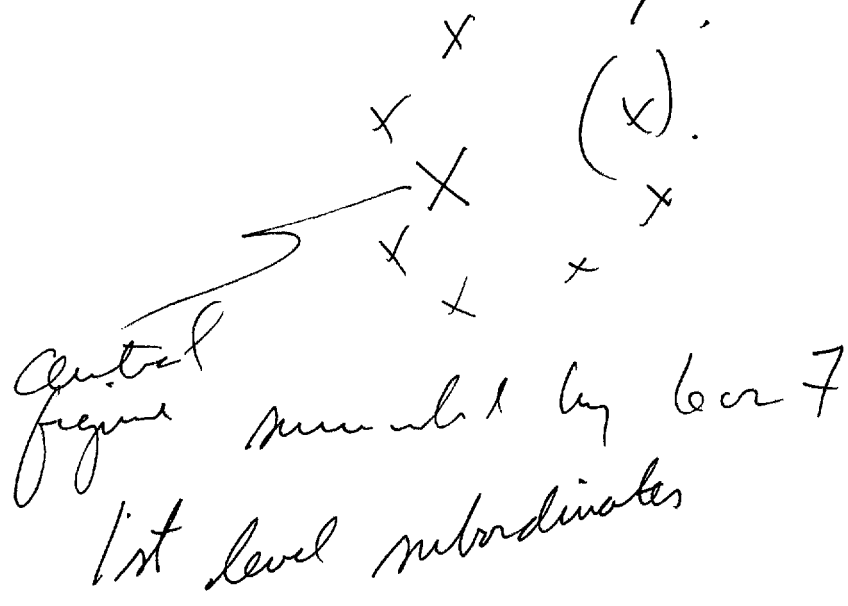 x
x (x).
X
x
x
x
x
central
figure surrounded by 6 or 7
1st level subordinates